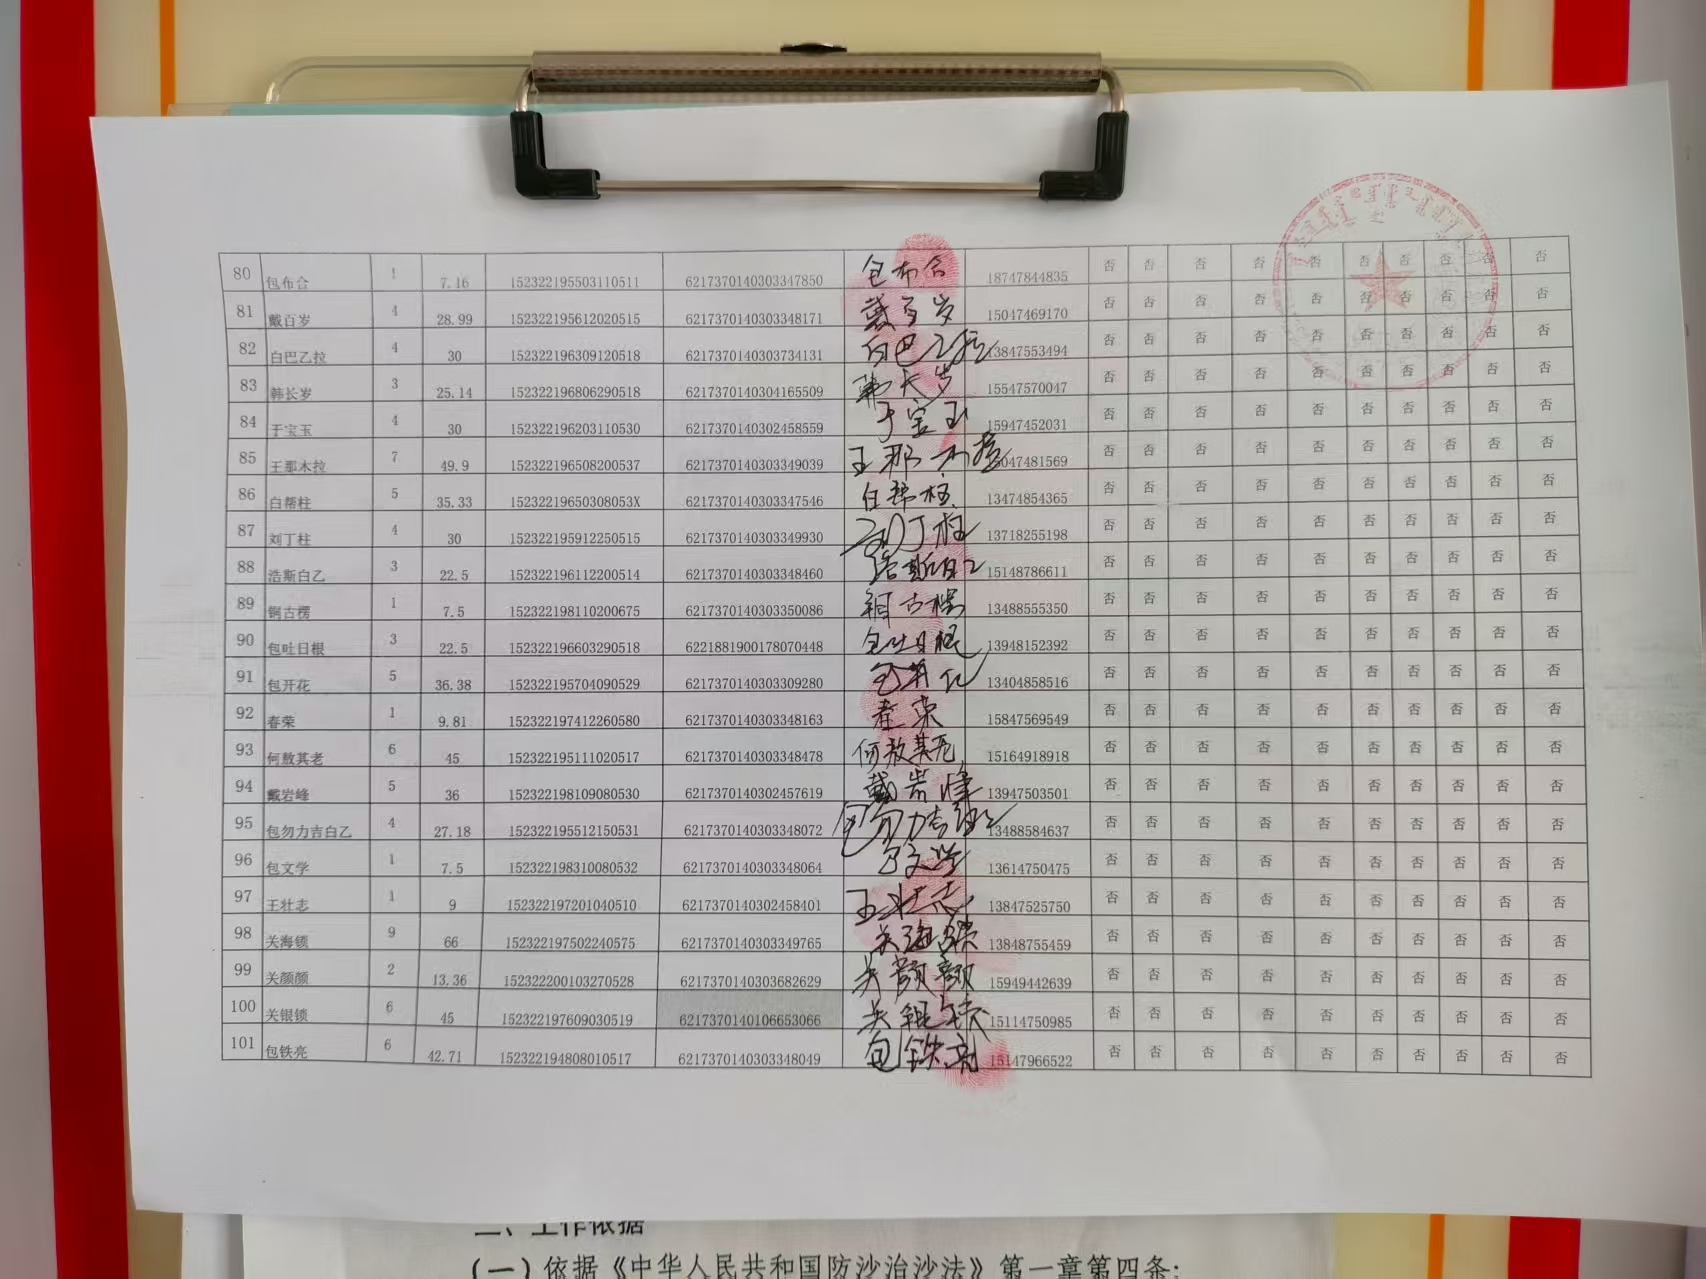 80 包布合 1 7.16 152322195503110511 6217370140303347850 包布合 18747844835 否 否 否 否 否 否 否 否 否 否
81 戴百岁 4 28.99 152322195612020515 6217370140303348171 戴百岁 15047469170 否 否 否 否 否 否 否 否 否 否
82 白巴乙拉 4 30 152322196309120518 6217370140303734131 白巴乙拉 13847553494 否 否 否 否 否 否 否 否 否 否
83 韩长岁 3 25.14 152322196806290518 6217370140304165509 韩长岁 15547570047 否 否 否 否 否 否 否 否 否 否
84 于宝玉 4 30 152322196203110530 6217370140302458559 于宝玉 15947452031 否 否 否 否 否 否 否 否 否 否
85 王那木拉 7 49.9 152322196508200537 6217370140303349039 王那木拉 15047481569 否 否 否 否 否 否 否 否 否 否
86 白帮柱 5 35.33 15232219650308053X 6217370140303347546 白帮柱 13474854365 否 否 否 否 否 否 否 否 否 否
87 刘丁柱 4 30 152322195912250515 6217370140303349930 刘丁柱 13718255198 否 否 否 否 否 否 否 否 否 否
88 浩斯白乙 3 22.5 152322196112200514 6217370140303348460 浩斯白乙 15148786611 否 否 否 否 否 否 否 否 否 否
89 铜古楞 1 7.5 152322198110200675 6217370140303350086 铜古楞 13488555350 否 否 否 否 否 否 否 否 否 否
90 包吐日根 3 22.5 152322196603290518 6221881900178070448 包吐日根 13948152392 否 否 否 否 否 否 否 否 否 否
91 包开花 5 36.38 152322195704090529 6217370140303309280 包开花 13404858516 否 否 否 否 否 否 否 否 否 否
92 春荣 1 9.81 152322197412260580 6217370140303348163 春荣 15847569549 否 否 否 否 否 否 否 否 否 否
93 何敖其老 6 45 152322195111020517 6217370140303348478 何敖其老 15164918918 否 否 否 否 否 否 否 否 否 否
94 戴岩峰 5 36 152322198109080530 6217370140302457619 戴岩峰 13947503501 否 否 否 否 否 否 否 否 否 否
95 包勿力吉白乙 4 27.18 152322195512150531 6217370140303348072 包勿力吉白乙 13488584637 否 否 否 否 否 否 否 否 否 否
96 包文学 1 7.5 152322198310080532 6217370140303348064 包文学 13614750475 否 否 否 否 否 否 否 否 否 否
97 王壮志 1 9 152322197201040510 6217370140302458401 王壮志 13847525750 否 否 否 否 否 否 否 否 否 否
98 关海锁 9 66 152322197502240575 6217370140303349765 关海锁 13848755459 否 否 否 否 否 否 否 否 否 否
99 关颜颜 2 13.36 152322200103270528 6217370140303682629 关颜颜 15949442639 否 否 否 否 否 否 否 否 否 否
100 关银锁 6 45 152322197609030519 6217370140106653066 关银锁 15114750985 否 否 否 否 否 否 否 否 否 否
101 包铁亮 6 42.71 152322194808010517 6217370140303348049 包铁亮 15147966522 否 否 否 否 否 否 否 否 否 否
二、工作依据
(一)依据《中华人民共和国防沙治沙法》第一章第四条: